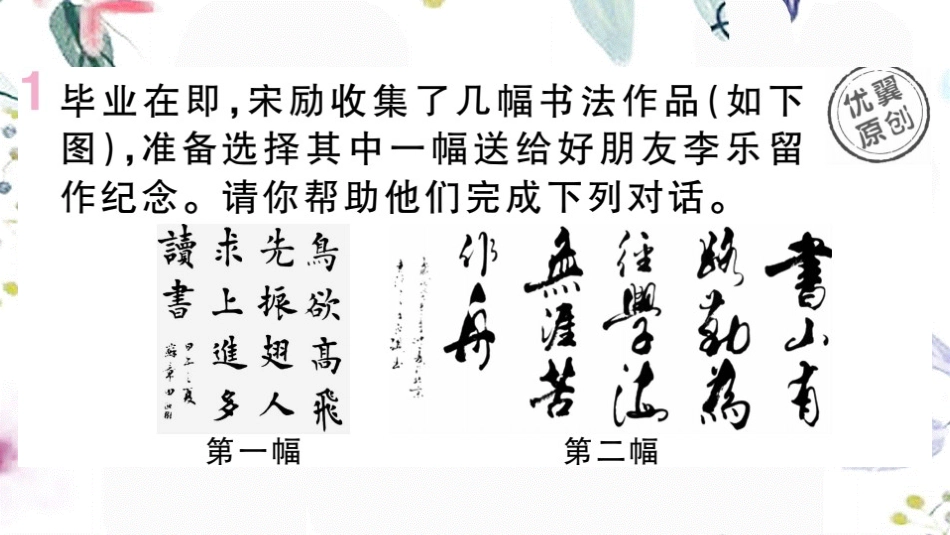 1 毕业在即,宋励收集了几幅书法作品(如下
图),准备选择其中一幅送给好朋友李乐留
作纪念。请你帮助他们完成下列对话。
优翼
原创
鳥欲高飛
先振翅人
求上進多
讀書
書山有
路勤為
徑學海
無涯苦
作舟
第一幅
第二幅